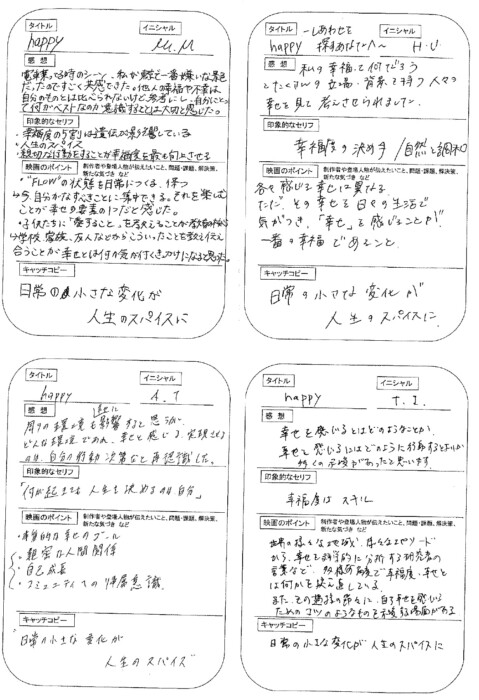 タイトル
イニシャル
happy
M.M
感想
だったのですごく共感できた。他人の幸福や不幸は
自分のそれとは比べられないけど、参考にし、自分にとっ
て何がベストなのか意識することは大切と感じた。
印象的なセリフ
・幸福度の5割は遺伝が影響している
・人生のスパイス
・親切な行動をすることが幸福度を最も向上させる
映画のポイント
制作者や登場人物が伝えたいこと、問題・課題、解決策、
新たな気づき など
・"FLOW"の状態を日常につくる、保つ
ことが幸せの要素の1つだと感じた。
合うことが幸せとは何か気が付くきっかけになると思った。
キャッチコピー
日常の小さな変化が
人生のスパイスに
タイトル
イニシャル
ーしあわせを
happy 探すあなたへー
H.U.
感想
私の幸福って何だろう
たくさんの立場、背景を持つ人々の
幸せを見て考えさせられました。
印象的なセリフ
幸福度の決め手/自然と調和
映画のポイント
制作者や登場人物が伝えたいこと、問題・課題、解決策、
新たな気づき など
各々感じる幸せは異なる。
ただ、その幸せを日々の生活で
気がつき、「幸せ」を感じることが!
一番の幸福であること
キャッチコピー
日常の小さな変化が
人生のスパイスに
タイトル
イニシャル
happy
A.T
感想
周りの環境も影響すると思うが、
印象的なセリフ
「何が起きても人生を決めるのは自分」
映画のポイント
制作者や登場人物が伝えたいこと、問題・課題、解決策、
新たな気づき など
・本質的な幸せのゴール
・親密な人間関係
・自己成長
・コミュニティへの帰属意識
キャッチコピー
日常の小さな変化が
人生のスパイス
タイトル
イニシャル
happy
T.I.
感想
幸せを感じるとはどのようなことか、
幸せを感じるにはどのように行動するとよいか
数々の示唆があったと思います
印象的なセリフ
幸福度はスキル
映画のポイント
制作者や登場人物が伝えたいこと、問題・課題、解決策、
新たな気づき など
世界の様々な地域、様々なエピソード
から、幸せを科学的に分析する研究者の
言葉など、多様な角度で幸福度、幸せと
は何かを捉え直している。
キャッチコピー
日常の小さな変化が 人生のスパイスに